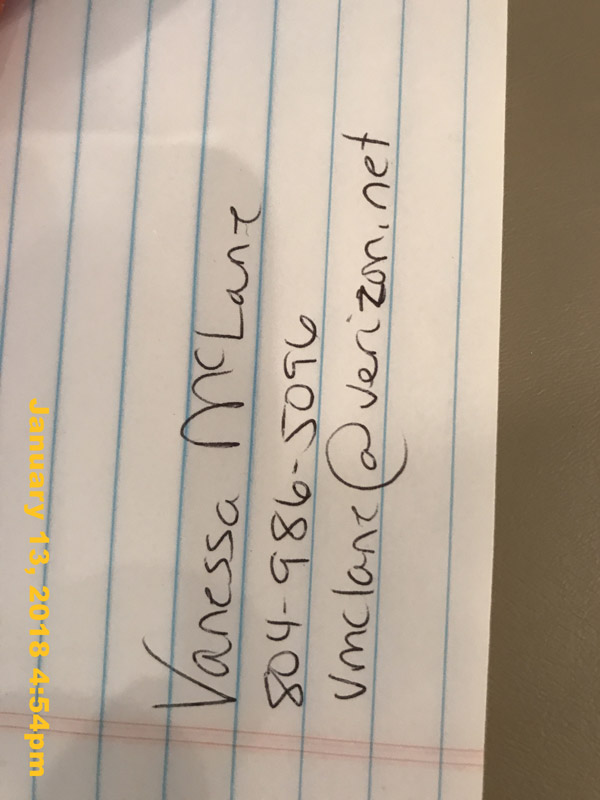 Vanessa McLane
804-986-5096
vmclane@verizon.net
January 13, 2018 4:54pm